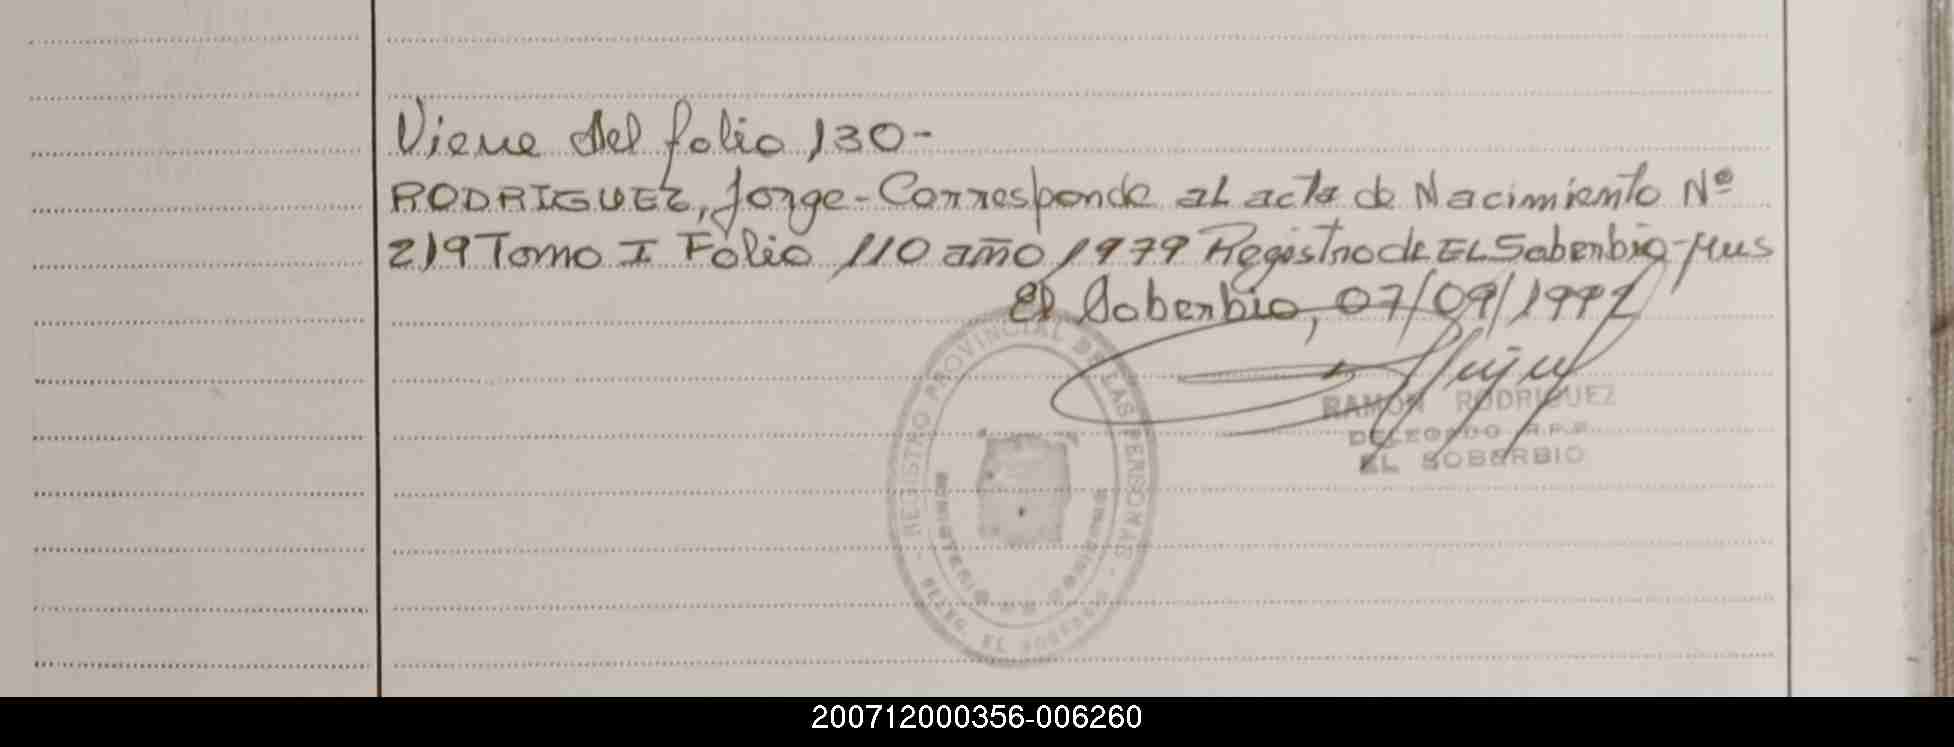 Viene del folio 130-
RODRIGUEZ, Jorge-Corresponde al acta de Nacimiento Nº
219 Tomo I Folio 110 año 1979 Registro de EL Soberbio-Mns
El Soberbio, 07/09/1992
RAMON RODRIGUEZ
DELEGADO R.P.P.
EL SOBERBIO
REGISTRO PROVINCIAL DE LAS PERSONAS
MINISTERIO DE GOBIERNO
DELEG. EL SOBERBIO
200712000356-006260